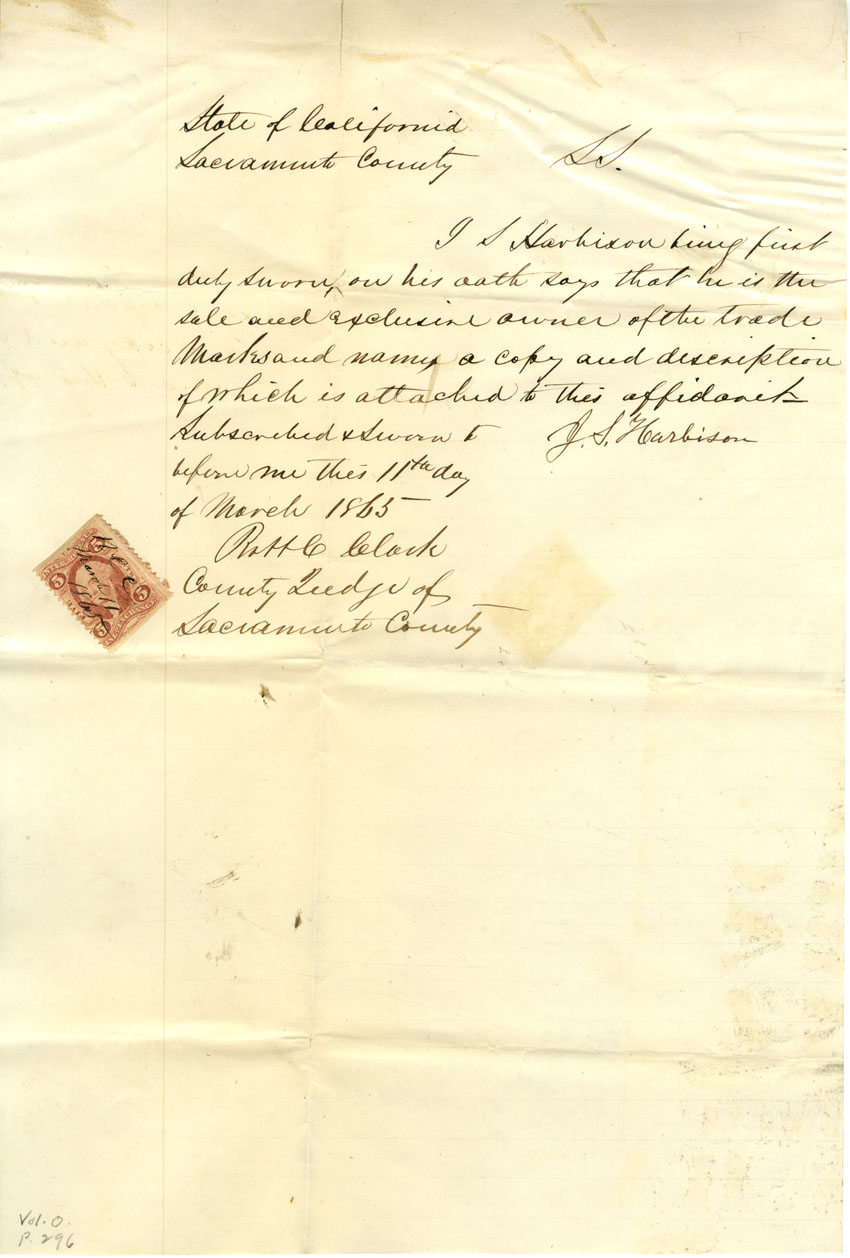 State of California
Sacramento County SS.
J S Harbison being first
duly sworn, on his oath says that he is the
sole and exclusive owner of the trade
Marks and names a copy and description
of which is attached to this affidavit
Subscribed & Sworn to J. S. Harbison
before me this 11th day
of March 1865
Robt C Clark
County Judge of
Sacramento County
March 11
1865
5
5
Vol. O.
P. 296